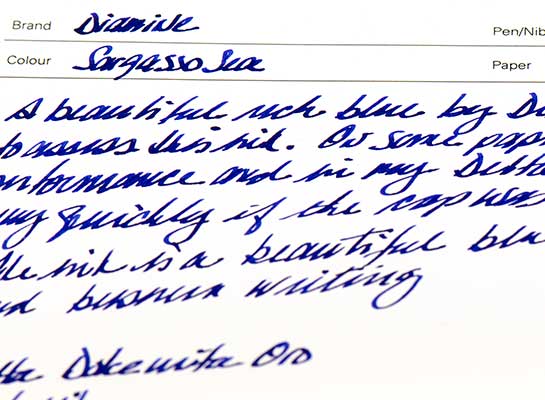 Brand Diamine Pen/Nib
Colour Sargasso Sea Paper
A beautiful rich blue by Di
to assess this ink. On some pap
onformance and in my Delta
quickly if the cap was
the ink is a beautiful blu
nd business writing
tta Dolcevita Oro